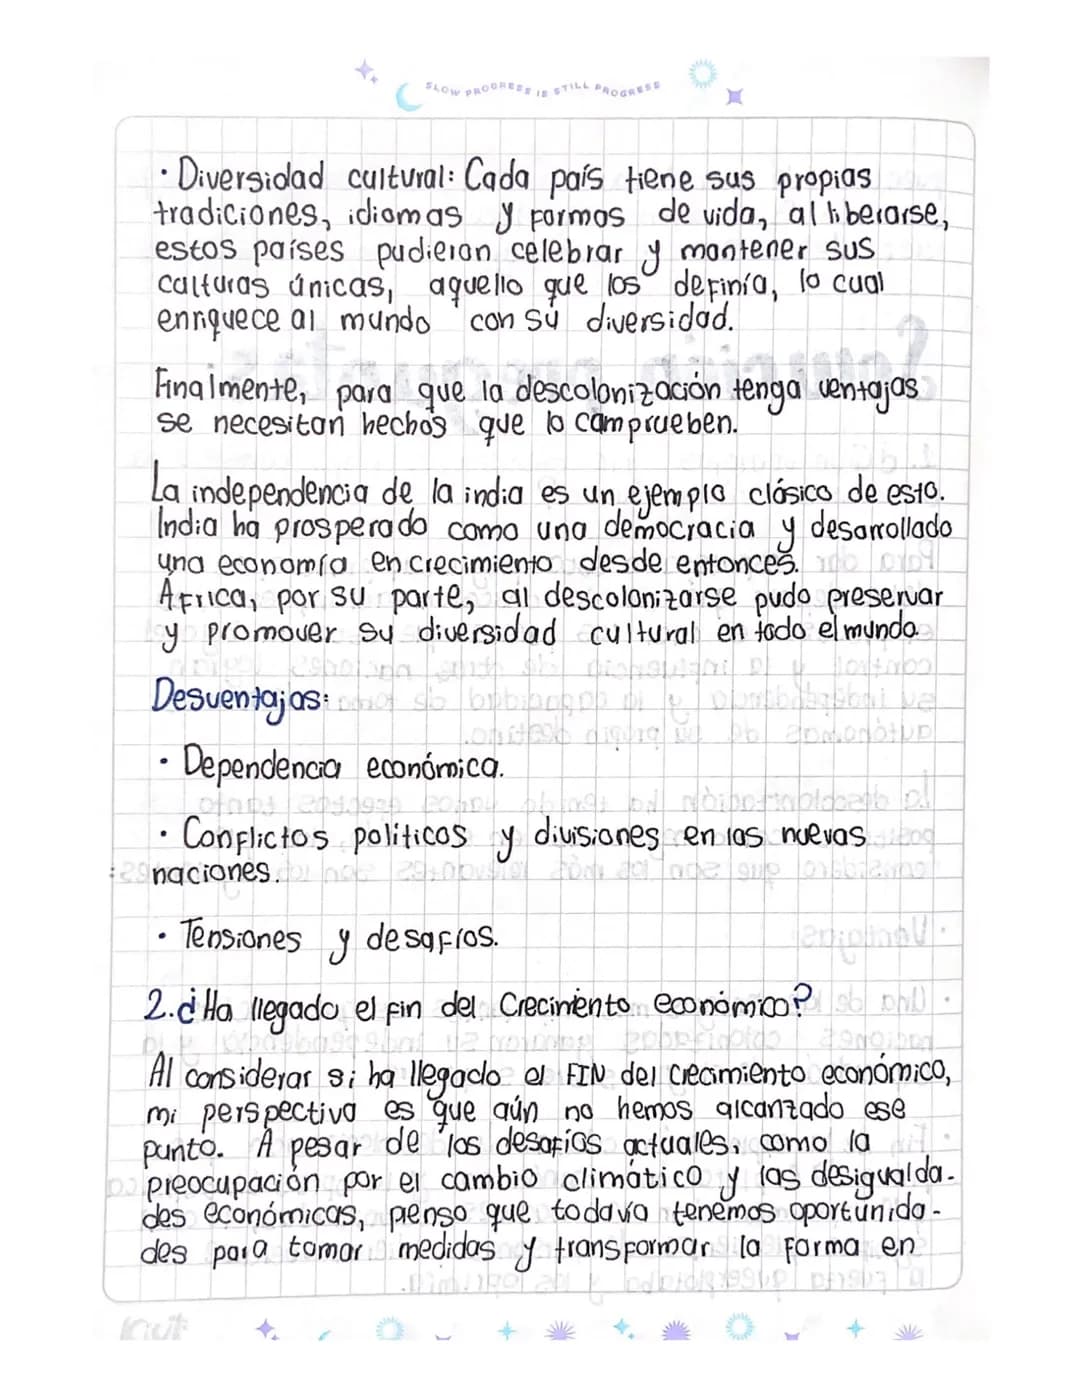 SLOW PROGRESS IS STILL PROGRESS
· Diversidad cultural: Cada país tiene sus propias
tradiciones, idiomas y formas de vida, al liberarse,
estos países pudieron celebrar y mantener sus
culturas únicas, aquello que los definía, lo cual
enriquece al mundo con su diversidad.
Finalmente, para que la descolonización tenga ventajas
se necesitan hechos que lo comprueben.
La independencia de la india es un ejemplo clásico de esto.
India ha prosperado como una democracia y desarrollado
una economía en crecimiento desde entonces.
África, por su parte, al descolonizarse pudo preservar
y promover su diversidad cultural en todo el mundo.
Desventajas:
· Dependencia económica.
· Conflictos políticos y divisiones en las nuevas
naciones.
· Tensiones y desafíos.
2. ¿Ha llegado el fin del Crecimiento económico?
Al considerar si ha llegado el FIN del crecimiento económico,
mi perspectiva es que aún no hemos alcanzado ese
punto. A pesar de los desafíos actuales, como la
preocupación por el cambio climático y las desigualda-
des económicas, pienso que todavía tenemos oportunida-
des para tomar medidas y transformar la forma en